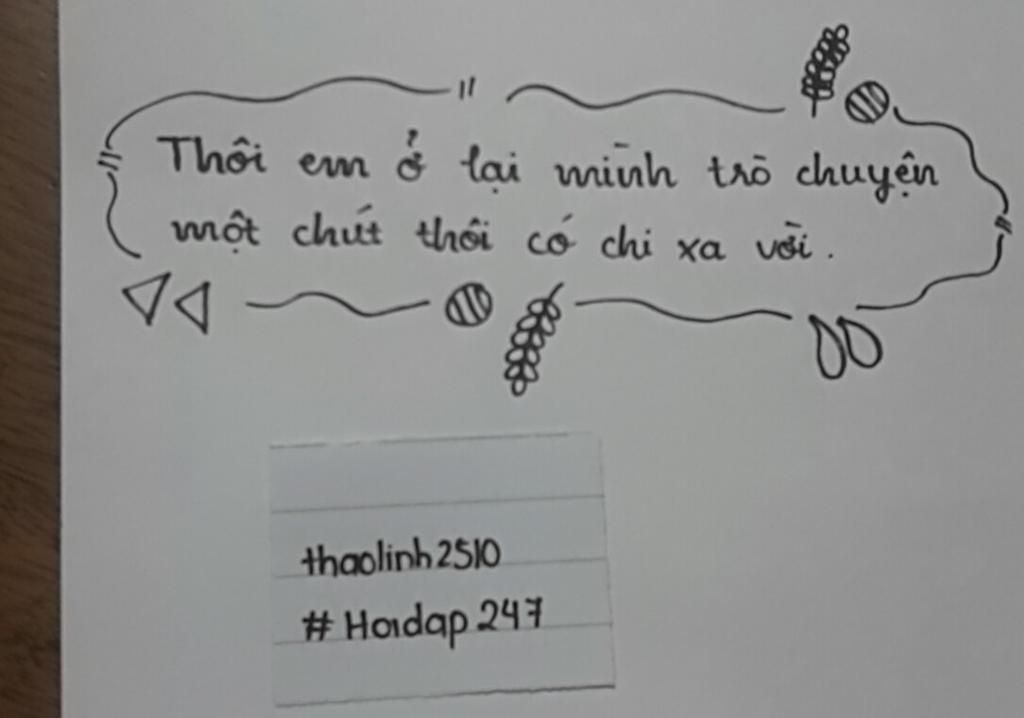 Thôi em ở lại mình trò chuyện
một chút thôi có chi xa vời.
thaolinh2510
# Hoidap 247